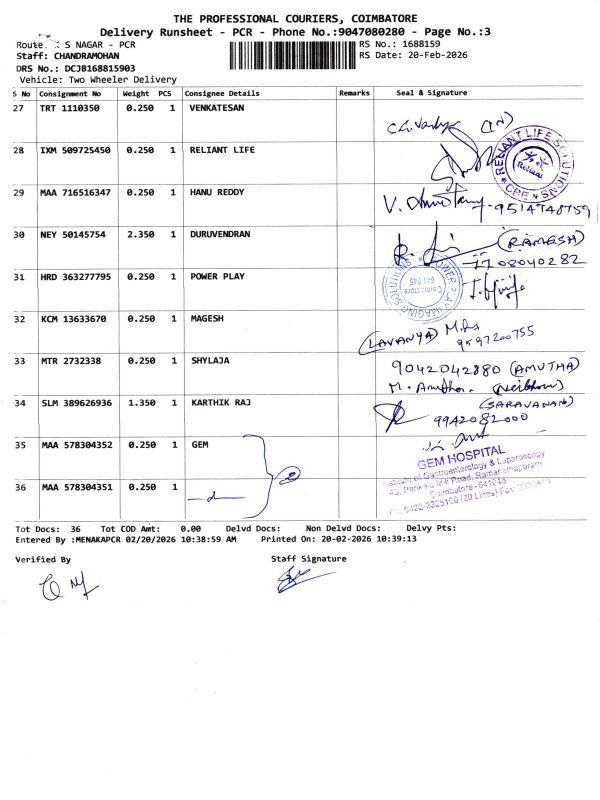 THE PROFESSIONAL COURIERS, COIMBATORE
Delivery Runsheet - PCR - Phone No.:9047080280 - Page No.:3
Route: S NAGAR - PCR
RS No.: 1688159
Staff: CHANDRAMOHAN
RS Date: 20-Feb-2026
DRS No.: DCJB168815903
Vehicle: Two Wheeler Delivery
S No Consignment No Weight PCS Consignee Details Remarks Seal & Signature
27 TRT 1110350 0.250 1 VENKATESAN
28 IXM 509725450 0.250 1 RELIANT LIFE
RELIANT LIFE SOLUTIONS
Reliant
CBE
29 MAA 716516347 0.250 1 HANU REDDY
V. 9514748759
30 NEY 50145754 2.350 1 DURUVENDRAN
(RAMESH)
31 HRD 363277795 0.250 1 POWER PLAY
Coimbatore
641 045
32 KCM 13633670 0.250 1 MAGESH
(LAVANYA)
9597200755
33 MTR 2732338 0.250 1 SHYLAJA
9042042880 (AMUTHA)
M. Amutha. (Neibhour)
34 SLM 389626936 1.350 1 KARTHIK RAJ
(SARAVANAN)
9942082000
35 MAA 578304352 0.250 1 GEM
2
GEM HOSPITAL
Institute of Gastroenterology & Laparoscopy
45, Pankaja Mill Road, Ramanathapuram
Coimbatore - 641045
36 MAA 578304351 0.250 1
Tot Docs: 36 Tot COD Amt: 0.00 Delvd Docs: Non Delvd Docs: Delvy Pts:
Entered By :MENAKAPCR 02/20/2026 10:38:59 AM Printed On: 20-02-2026 10:39:13
Verified By Staff Signature